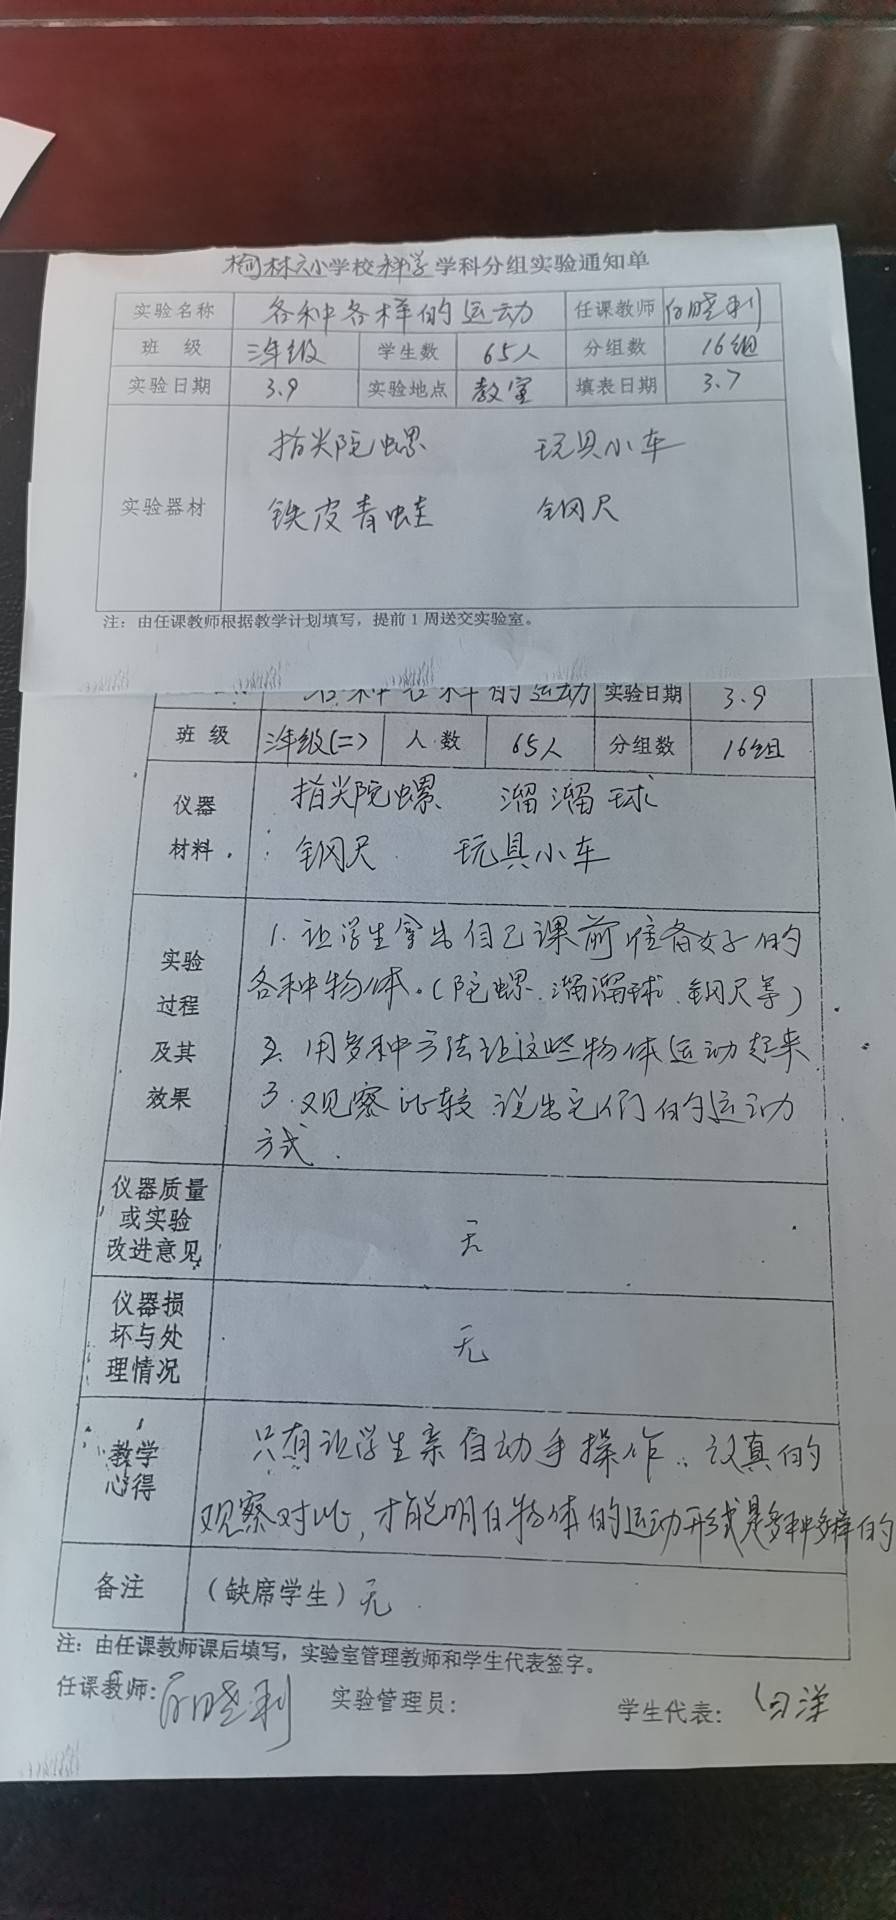 榆林六小学校科学学科分组实验通知单
实验名称 各种各样的运动 任课教师 白晓利
班 级 三年级 学生数 65人 分组数 16组
实验日期 3.9 实验地点 教室 填表日期 3.7
指尖陀螺 玩具小车
实验器材 铁皮青蛙 钢尺
注：由任课教师根据教学计划填写，提前1周送交实验室。
各种各样的运动 实验日期 3.9
班 级 三年级(二) 人 数 65人 分组数 16组
仪器 指尖陀螺 溜溜球
材料 钢尺 玩具小车
实验 1.让学生拿出自己课前准备好的
过程 各种物体。(陀螺、溜溜球、钢尺等)
及其 2.用多种方法让这些物体运动起来
效果 3.观察比较说出它们的运动
方式.
仪器质量
或实验
改进意见 无
仪器损
坏与处
理情况 无
教学 只有让学生亲自动手操作，认真的
心得 观察对比,才能明白物体的运动形式是多种多样的
备注 (缺席学生)无
注：由任课教师课后填写，实验室管理教师和学生代表签字。
任课教师：白晓利 实验管理员： 学生代表：白洋